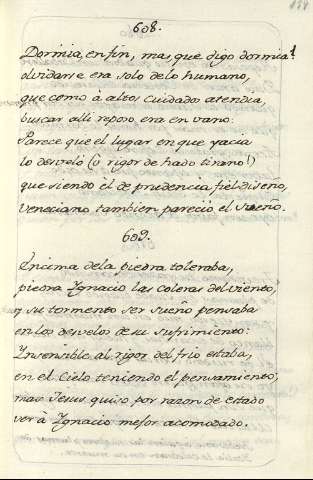 608.
Dormia, en fin, mas que digo dormia!
olvidarse era solo de lo humano,
que como à altos cuidados atendia,
buscar alli reposo era en vano:
Parece que el lugar en que yacia
lo desvelò (ò rigor de hado tirano!)
que siendo èl de prudencia fiel diseño,
Veneciano tambien pareciò el sueño.
609.
Encima de la piedra toleraba,
piedra Ygnacio las coleras del viento,
y su tormento ser sueño pensaba
en los desvelos de su sufrimiento:
Ynsensible al rigor del frio estaba,
en el Cielo teniendo el pensamiento,
mas Jesus quiso por razon de estado
ver à Ygnacio mejor acomodado.